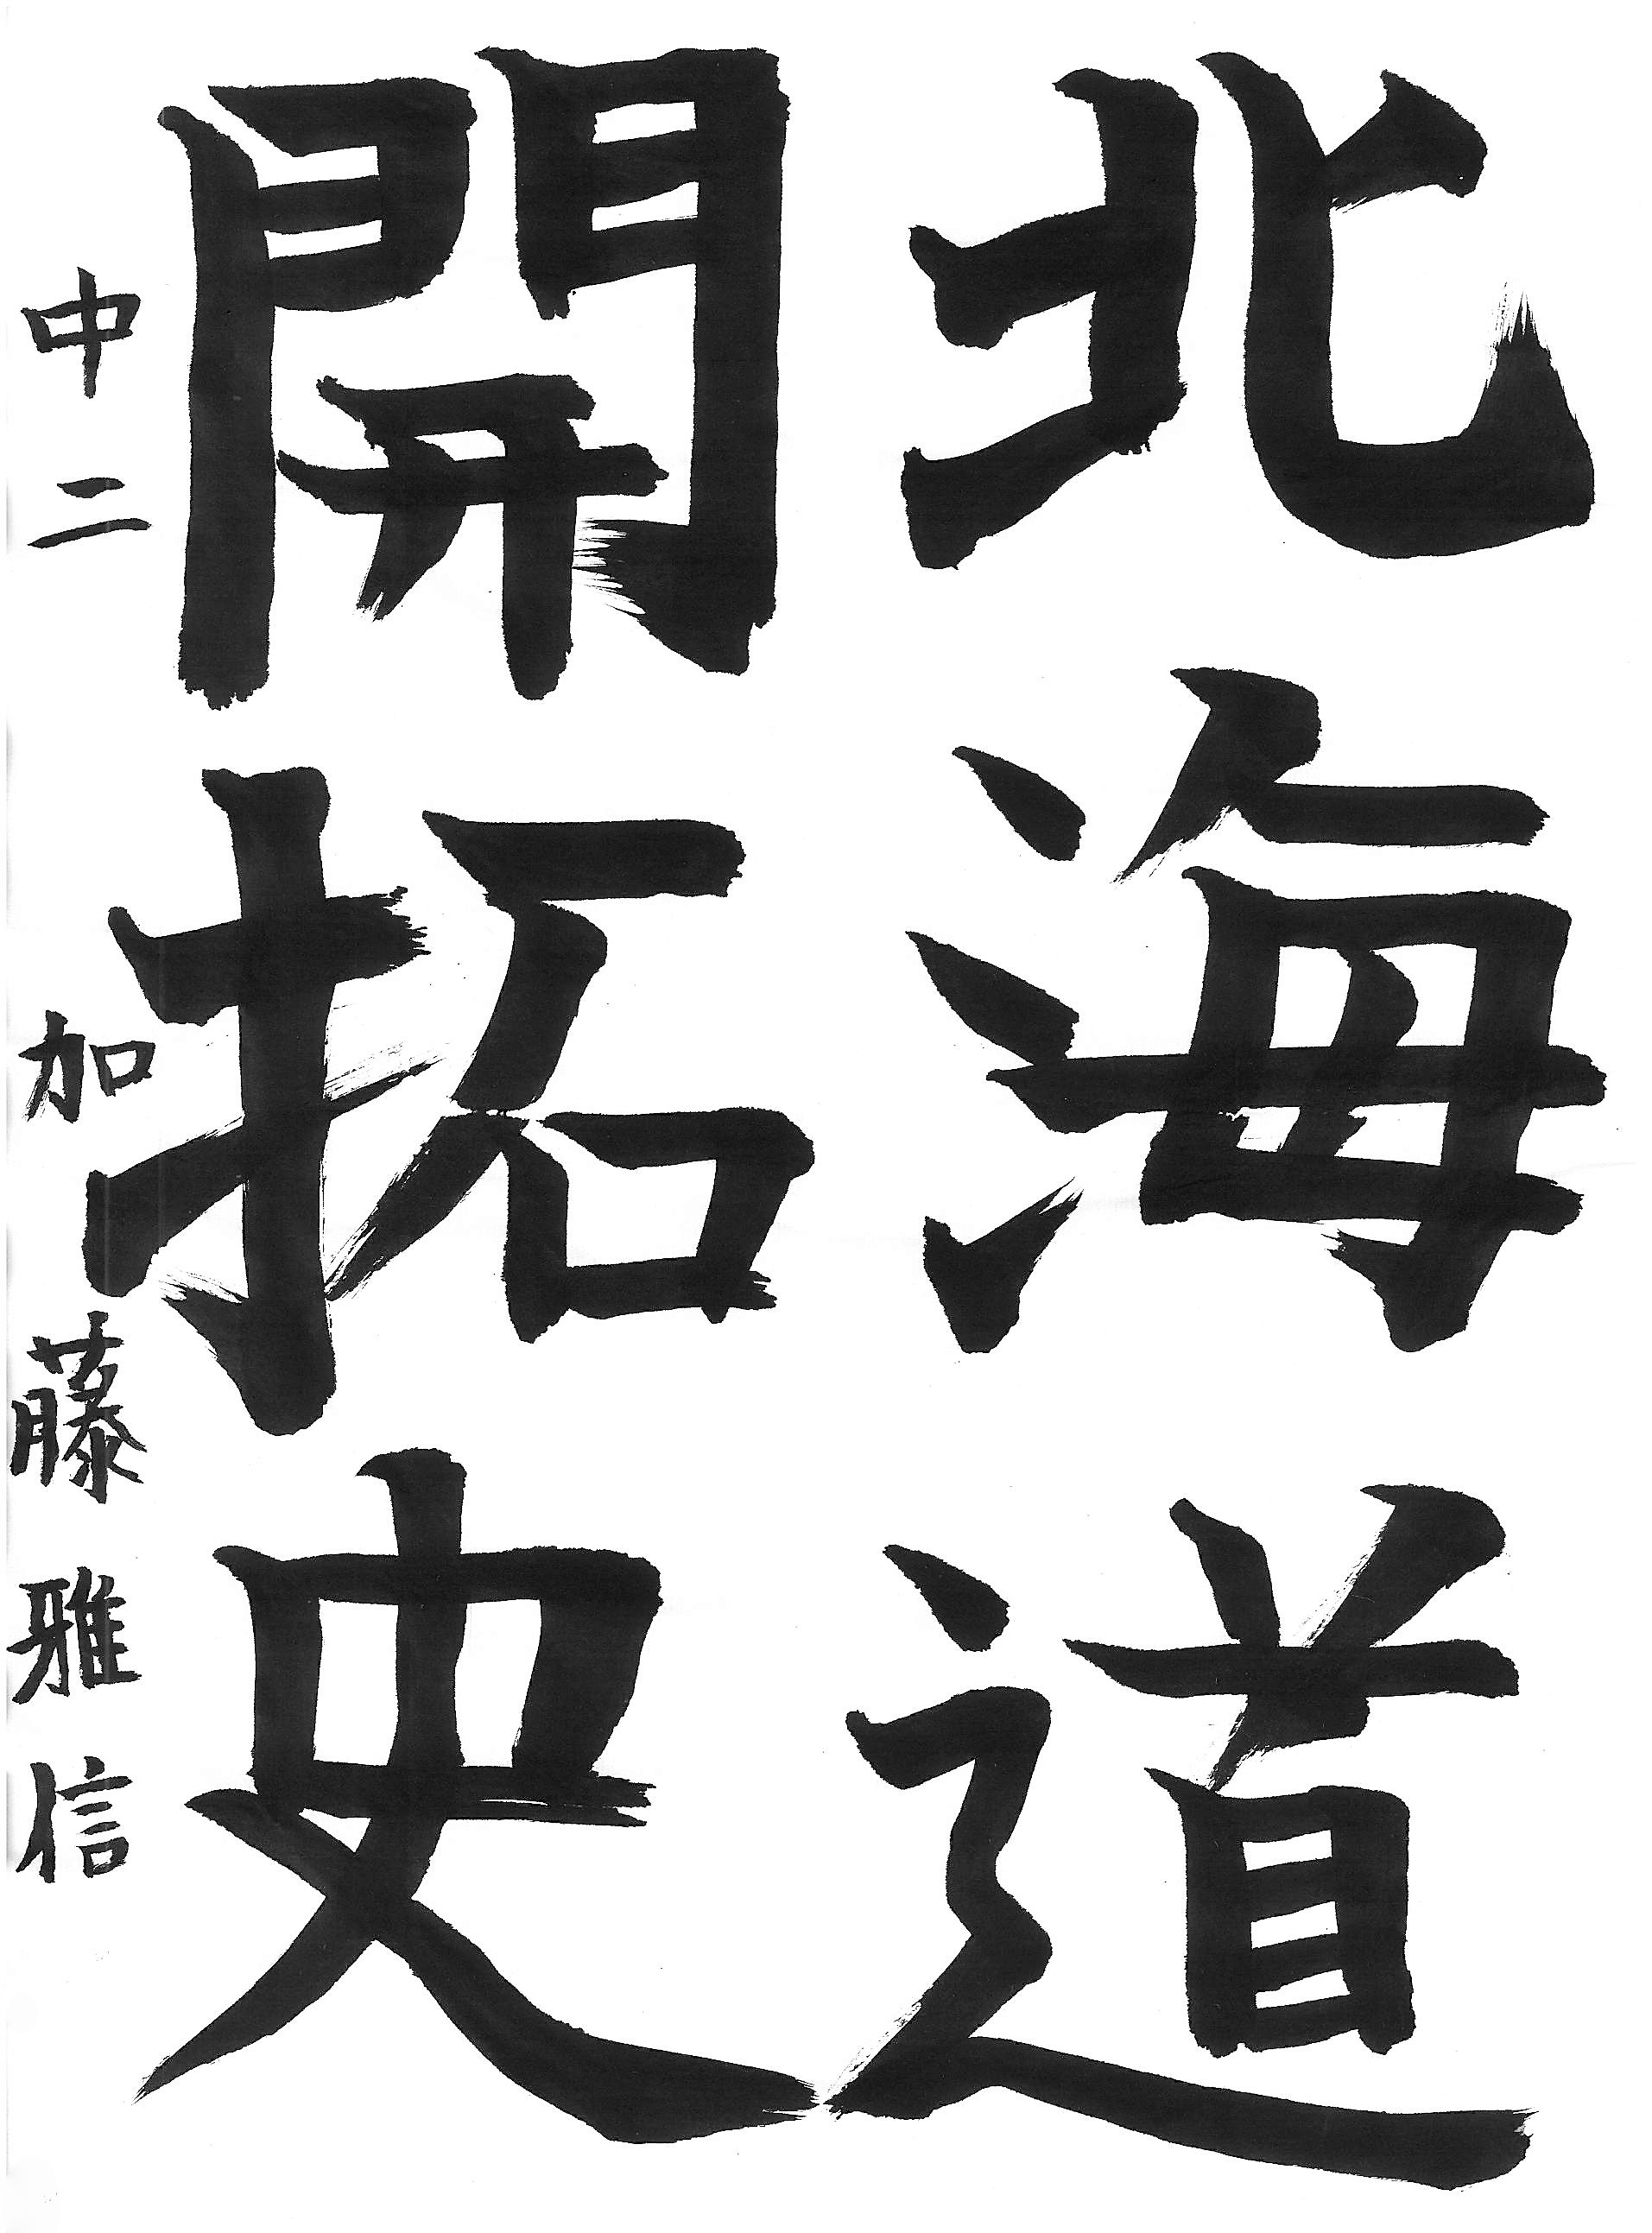 北海道
開拓史
中二 加藤雅信